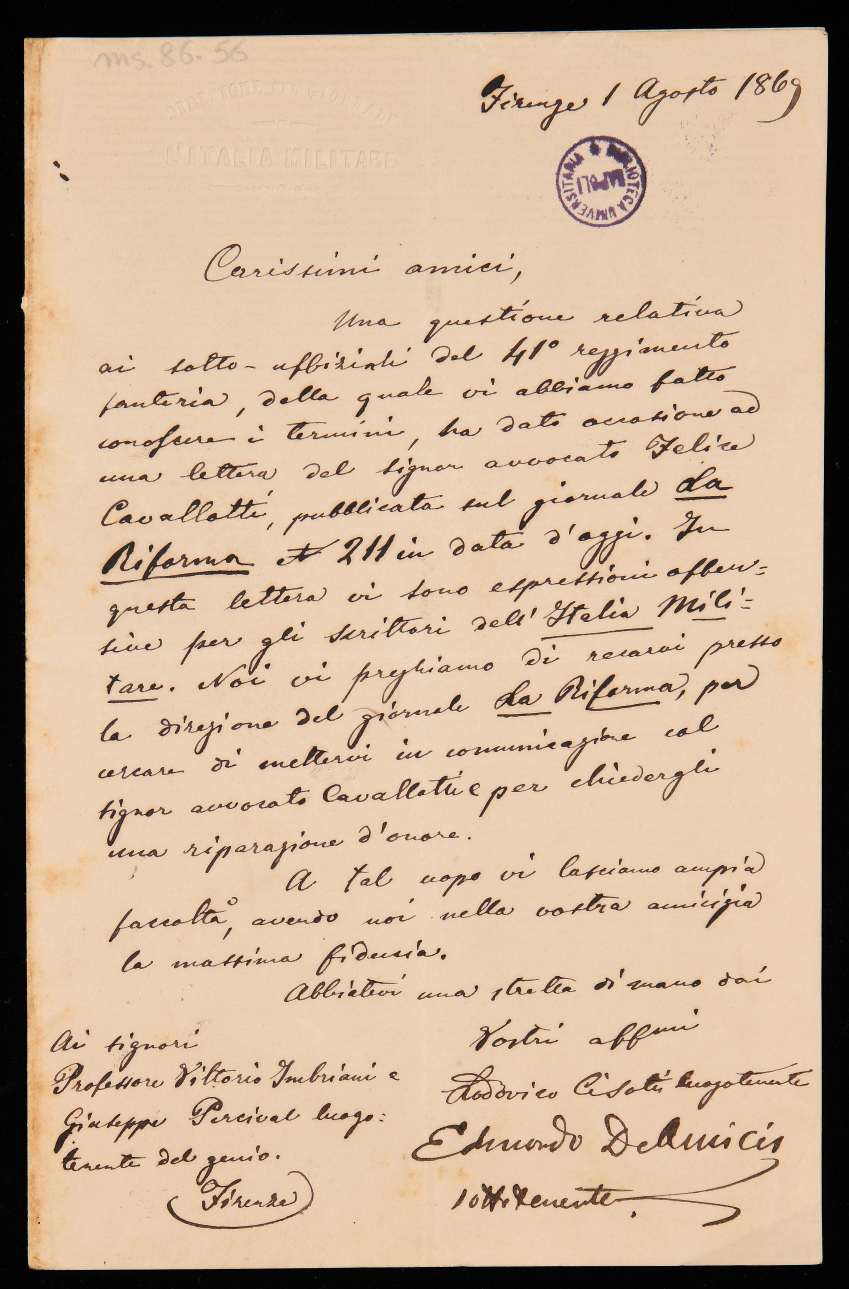 ms. 86. 56
DIREZIONE DEL GIORNALE
L'ITALIA MILITARE
Firenze 1 Agosto 1869
BIBLIOTECA UNIVERSITARIA
NAPOLI
Carissimi amici,
Una questione relativa
ai sotto-uffiziali del 41° reggimento
fanteria, della quale vi abbiamo fatto
conoscere i termini, ha dato occasione ad
una lettera del signor avvocato Felice
Cavallotti, pubblicata sul giornale La
Riforma N 211 in data d'oggi. In
questa lettera vi sono espressioni offen=
sive per gli scrittori dell'Italia Mili=
tare. Noi vi preghiamo di recarvi presso
la direzione del giornale La Riforma, per
cercare di mettervi in comunicazione col
signor avvocato Cavallotti e per chiedergli
una riparazione d'onore.
A tal uopo vi lasciamo ampia
faccoltà, avendo noi nella vostra amicizia
la massima fiducia.
Abbiatevi una stretta di mano dai
Vostri affmi
Lodovico Cisotti luogotenente
Edmondo DeAmicis
sottotenente
Ai signori
Professore Vittorio Imbriani e
Giuseppe Percival luogo=
tenente del genio.
Firenze